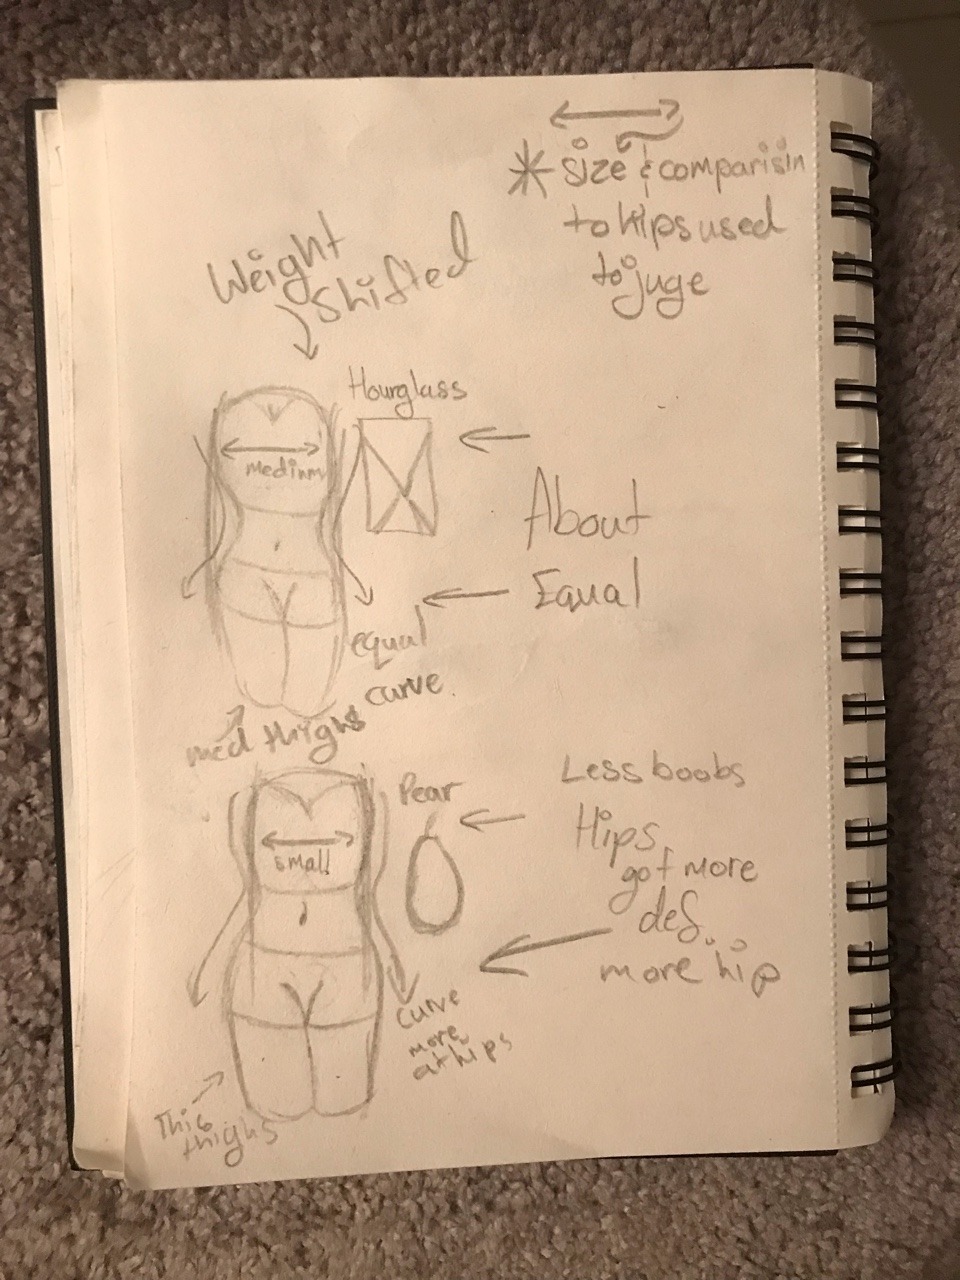 * size & comparisin
to hips used
to juge
Weight
Shifted
Hourglass
medium
About
Equal
equal
curve.
med thighs
Pear
small
Less boobs
Hips
got more
def.
more hip
curve
more
at hips
Thic
thighs